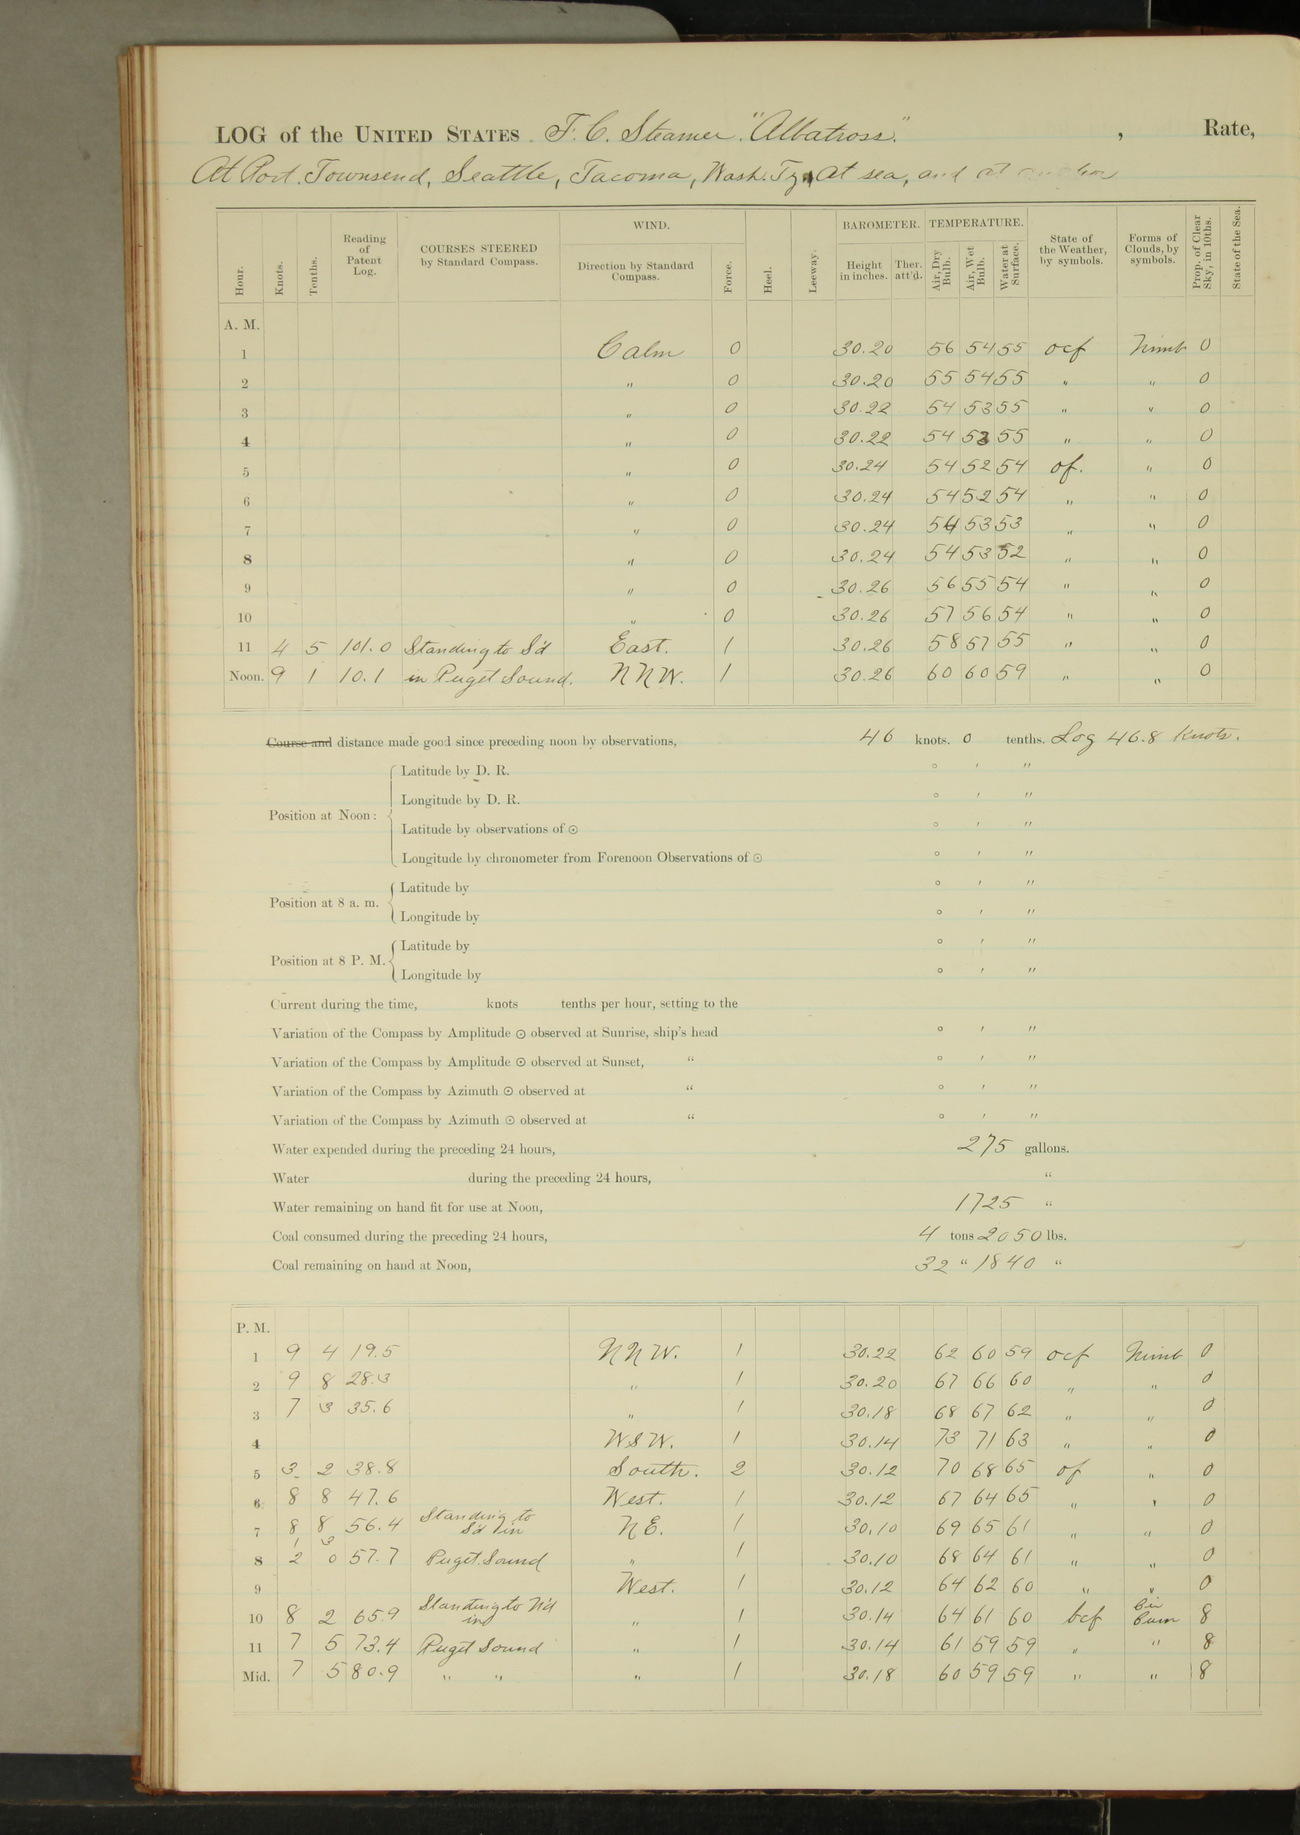 LOG of the UNITED STATES F. C. Steamer "Albatross." , Rate,
At Port Townsend, Seattle, Tacoma, Wash. Ty, At sea, and at anchor
Hour. Knots. Tenths. Reading of Patent Log. COURSES STEERED by Standard Compass. WIND. Direction by Standard Compass. Force. Heel. Leeway. BAROMETER. Height in inches. Ther. att'd. TEMPERATURE. Air, Dry Bulb. Air, Wet Bulb. Water at Surface. State of the Weather, by symbols. Forms of Clouds, by symbols. Prop. of Clear Sky, in 10ths. State of the Sea.
A. M.
1 Calm 0 30.20 56 54 55 ocf Nimb 0
2 " 0 30.20 55 54 55 " " 0
3 " 0 30.22 54 53 55 " " 0
4 " 0 30.22 54 53 55 " " 0
5 " 0 30.24 54 52 54 of. " 0
6 " 0 30.24 54 52 54 " " 0
7 " 0 30.24 54 53 53 " " 0
8 " 0 30.24 54 53 52 " " 0
9 " 0 30.26 56 55 54 " " 0
10 " 0 30.26 57 56 54 " " 0
11 4 5 101.0 Standing to S'd East. 1 30.26 58 57 55 " " 0
Noon. 9 1 10.1 in Puget Sound. NNW. 1 30.26 60 60 59 " " 0
Course and distance made good since preceding noon by observations, 46 knots. 0 tenths. Log 46.8 Knots.
Latitude by D. R. ° ' "
Longitude by D. R. ° ' "
Position at Noon:
Latitude by observations of ☉ ° ' "
Longitude by chronometer from Forenoon Observations of ☉ ° ' "
Latitude by ° ' "
Position at 8 a. m.
Longitude by ° ' "
Latitude by ° ' "
Position at 8 P. M.
Longitude by ° ' "
Current during the time, knots tenths per hour, setting to the
Variation of the Compass by Amplitude ☉ observed at Sunrise, ship's head ° ' "
Variation of the Compass by Amplitude ☉ observed at Sunset, " ° ' "
Variation of the Compass by Azimuth ☉ observed at " ° ' "
Variation of the Compass by Azimuth ☉ observed at " ° ' "
Water expended during the preceding 24 hours, 275 gallons.
Water during the preceding 24 hours, "
Water remaining on hand fit for use at Noon, 1725 "
Coal consumed during the preceding 24 hours, 4 tons 2050 lbs.
Coal remaining on hand at Noon, 32 " 1840 "
P. M.
1 9 4 19.5 NNW. 1 30.22 62 60 59 ocf Nimb 0
2 9 8 28.3 " 1 30.20 67 66 60 " " 0
3 7 3 35.6 " 1 30.18 68 67 62 " " 0
4 WSW. 1 30.14 73 71 63 " " 0
5 3 2 38.8 South. 2 30.12 70 68 65 of " 0
6 8 8 47.6 West. 1 30.12 67 64 65 " " 0
7 8 8 56.4 Standing to S'd in NE. 1 30.10 69 65 61 " " 0
1 3
8 2 0 57.7 Puget Sound " 1 30.10 68 64 61 " " 0
9 West. 1 30.12 64 62 60 " " 0
10 8 2 65.9 Standing to N'd in " 1 30.14 64 61 60 bcf Cir Cum 8
11 7 5 73.4 Puget Sound " 1 30.14 61 59 59 " " 8
Mid. 7 5 80.9 " " " 1 30.18 60 59 59 " " 8